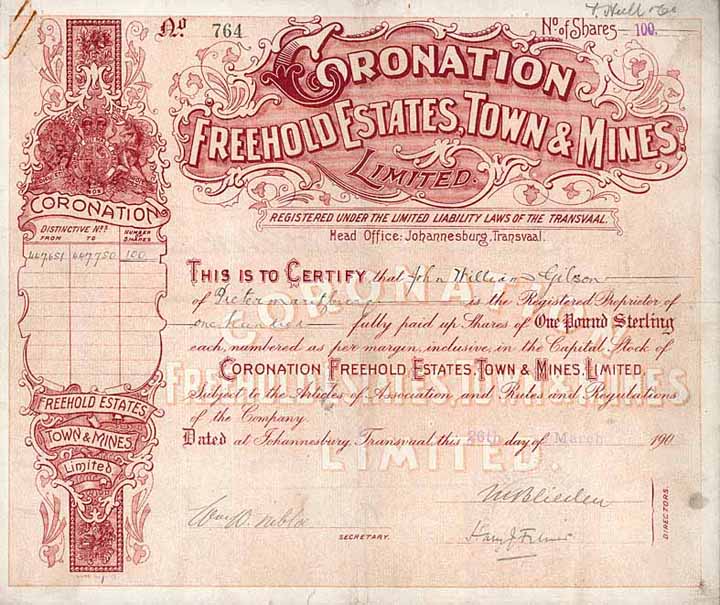 No 764
No of Shares 100
CORONATION
FREEHOLD ESTATES, TOWN & MINES
LIMITED.
REGISTERED UNDER THE LIMITED LIABILITY LAWS OF THE TRANSVAAL.
Head Office: Johannesburg, Transvaal.
CORONATION
DISTINCTIVE Nos NUMBER OF SHARES
FROM TO
447,651 447,750 100
THIS IS TO CERTIFY, that John William Gibson
of Pietermaritzburg is the Registered Proprietor of
one hundred fully paid up Shares of One Pound Sterling
each, numbered as per margin, inclusive, in the Capital Stock of
CORONATION FREEHOLD ESTATES, TOWN & MINES, LIMITED
Subject to the Articles of Association and Rules and Regulations
of the Company.
Dated at Johannesburg, Transvaal, this 26th day of March 190
FREEHOLD ESTATES
TOWN & MINES
Limited
CORONATION
FREEHOLD ESTATES, TOWN & MINES
LIMITED.
SECRETARY.
DIRECTORS.